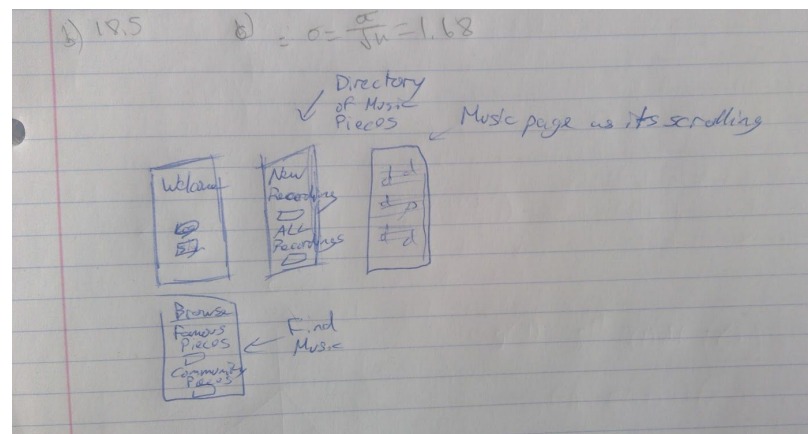 b) 18.5
c) = σ = σ/√n = 1.68
Directory
of Music
Pieces
Music page as its scrolling
Welcome
New
Recording
ALL
Recordings
Browse
Famous
Pieces
Community
Pieces
Find
Music